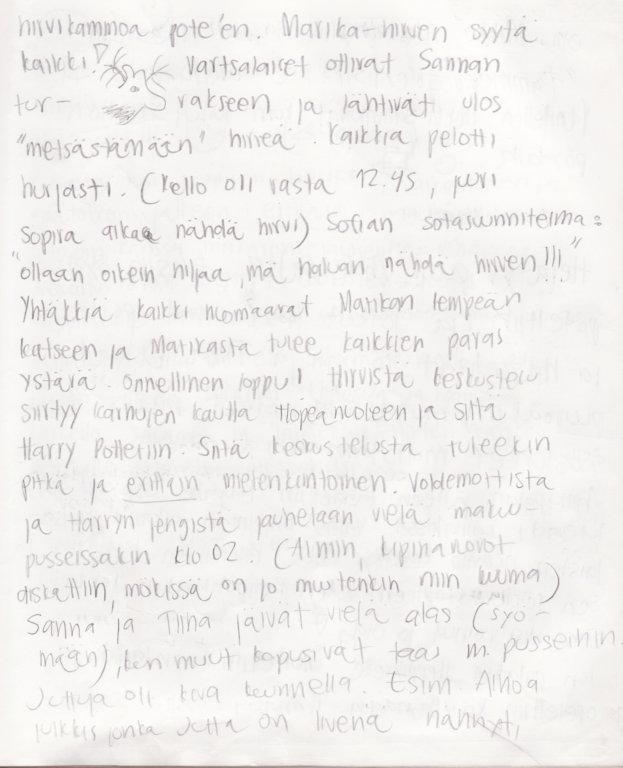 hirvikammoa pote'en. Marika-hirven syytä
kaikki! Vartsalaiset ottivat Sannan
tur- vakseen ja lähtivät ulos
"metsästämään" hirveä. Kaikkia pelotti
hurjasti. (kello oli vasta 12.45 juuri
sopiva aika nähdä hirvi) Sofian sotasuunnitelma:
"ollaan oikein hiljaa, mä haluan nähdä hirven!!!"
Yhtäkkiä kaikki huomaavat Marikan lempeän
katseen ja Marikasta tulee kaikkien paras
ystävä. Onnellinen loppu! Hirvistä keskustelu
siirtyy karhujen kautta Hopeanuoleen ja siitä
Harry Potteriin. Siitä keskustelusta tuleekin
pitkä ja erittäin mielenkiintoinen. Voldemortista
ja Harryn jengistä jauhetaan vielä maku-
pusseissakin klo 02. (Ai niin, kipinävuorot
diskattiin, mökissä on jo muutenkin niin kuuma)
Sanna ja Tiina jäivät vielä alas (syö-
mään), kun muut kapusivat taas m. pusseihin.
Juttuja oli kiva kuunnella. Esim. Ainoa
julkkis jonka Jutta on livenä nähnyt,